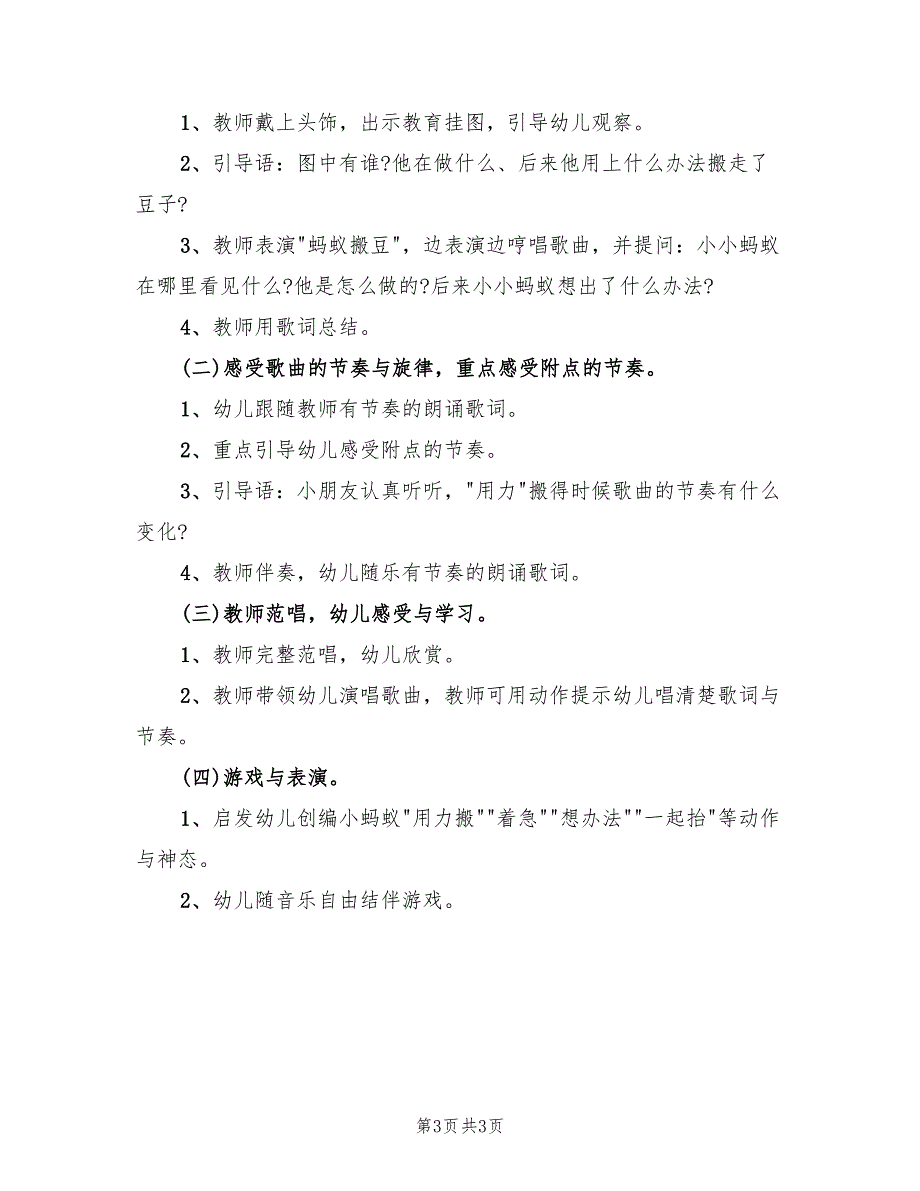 1、教师戴上头饰，出示教育挂图，引导幼儿观察。
2、引导语：图中有谁?他在做什么、后来他用上什么办法搬走了
豆子?
3、教师表演"蚂蚁搬豆"，边表演边哼唱歌曲，并提问：小小蚂蚁
在哪里看见什么?他是怎么做的?后来小小蚂蚁想出了什么办法?
4、教师用歌词总结。
(二)感受歌曲的节奏与旋律，重点感受附点的节奏。
1、幼儿跟随教师有节奏的朗诵歌词。
2、重点引导幼儿感受附点的节奏。
3、引导语：小朋友认真听听，"用力"搬得时候歌曲的节奏有什么
变化?
4、教师伴奏，幼儿随乐有节奏的朗诵歌词。
(三)教师范唱，幼儿感受与学习。
1、教师完整范唱，幼儿欣赏。
2、教师带领幼儿演唱歌曲，教师可用动作提示幼儿唱清楚歌词与
节奏。
(四)游戏与表演。
1、启发幼儿创编小蚂蚁"用力搬""着急""想办法""一起抬"等动作
与神态。
2、幼儿随音乐自由结伴游戏。
第3页 共3页